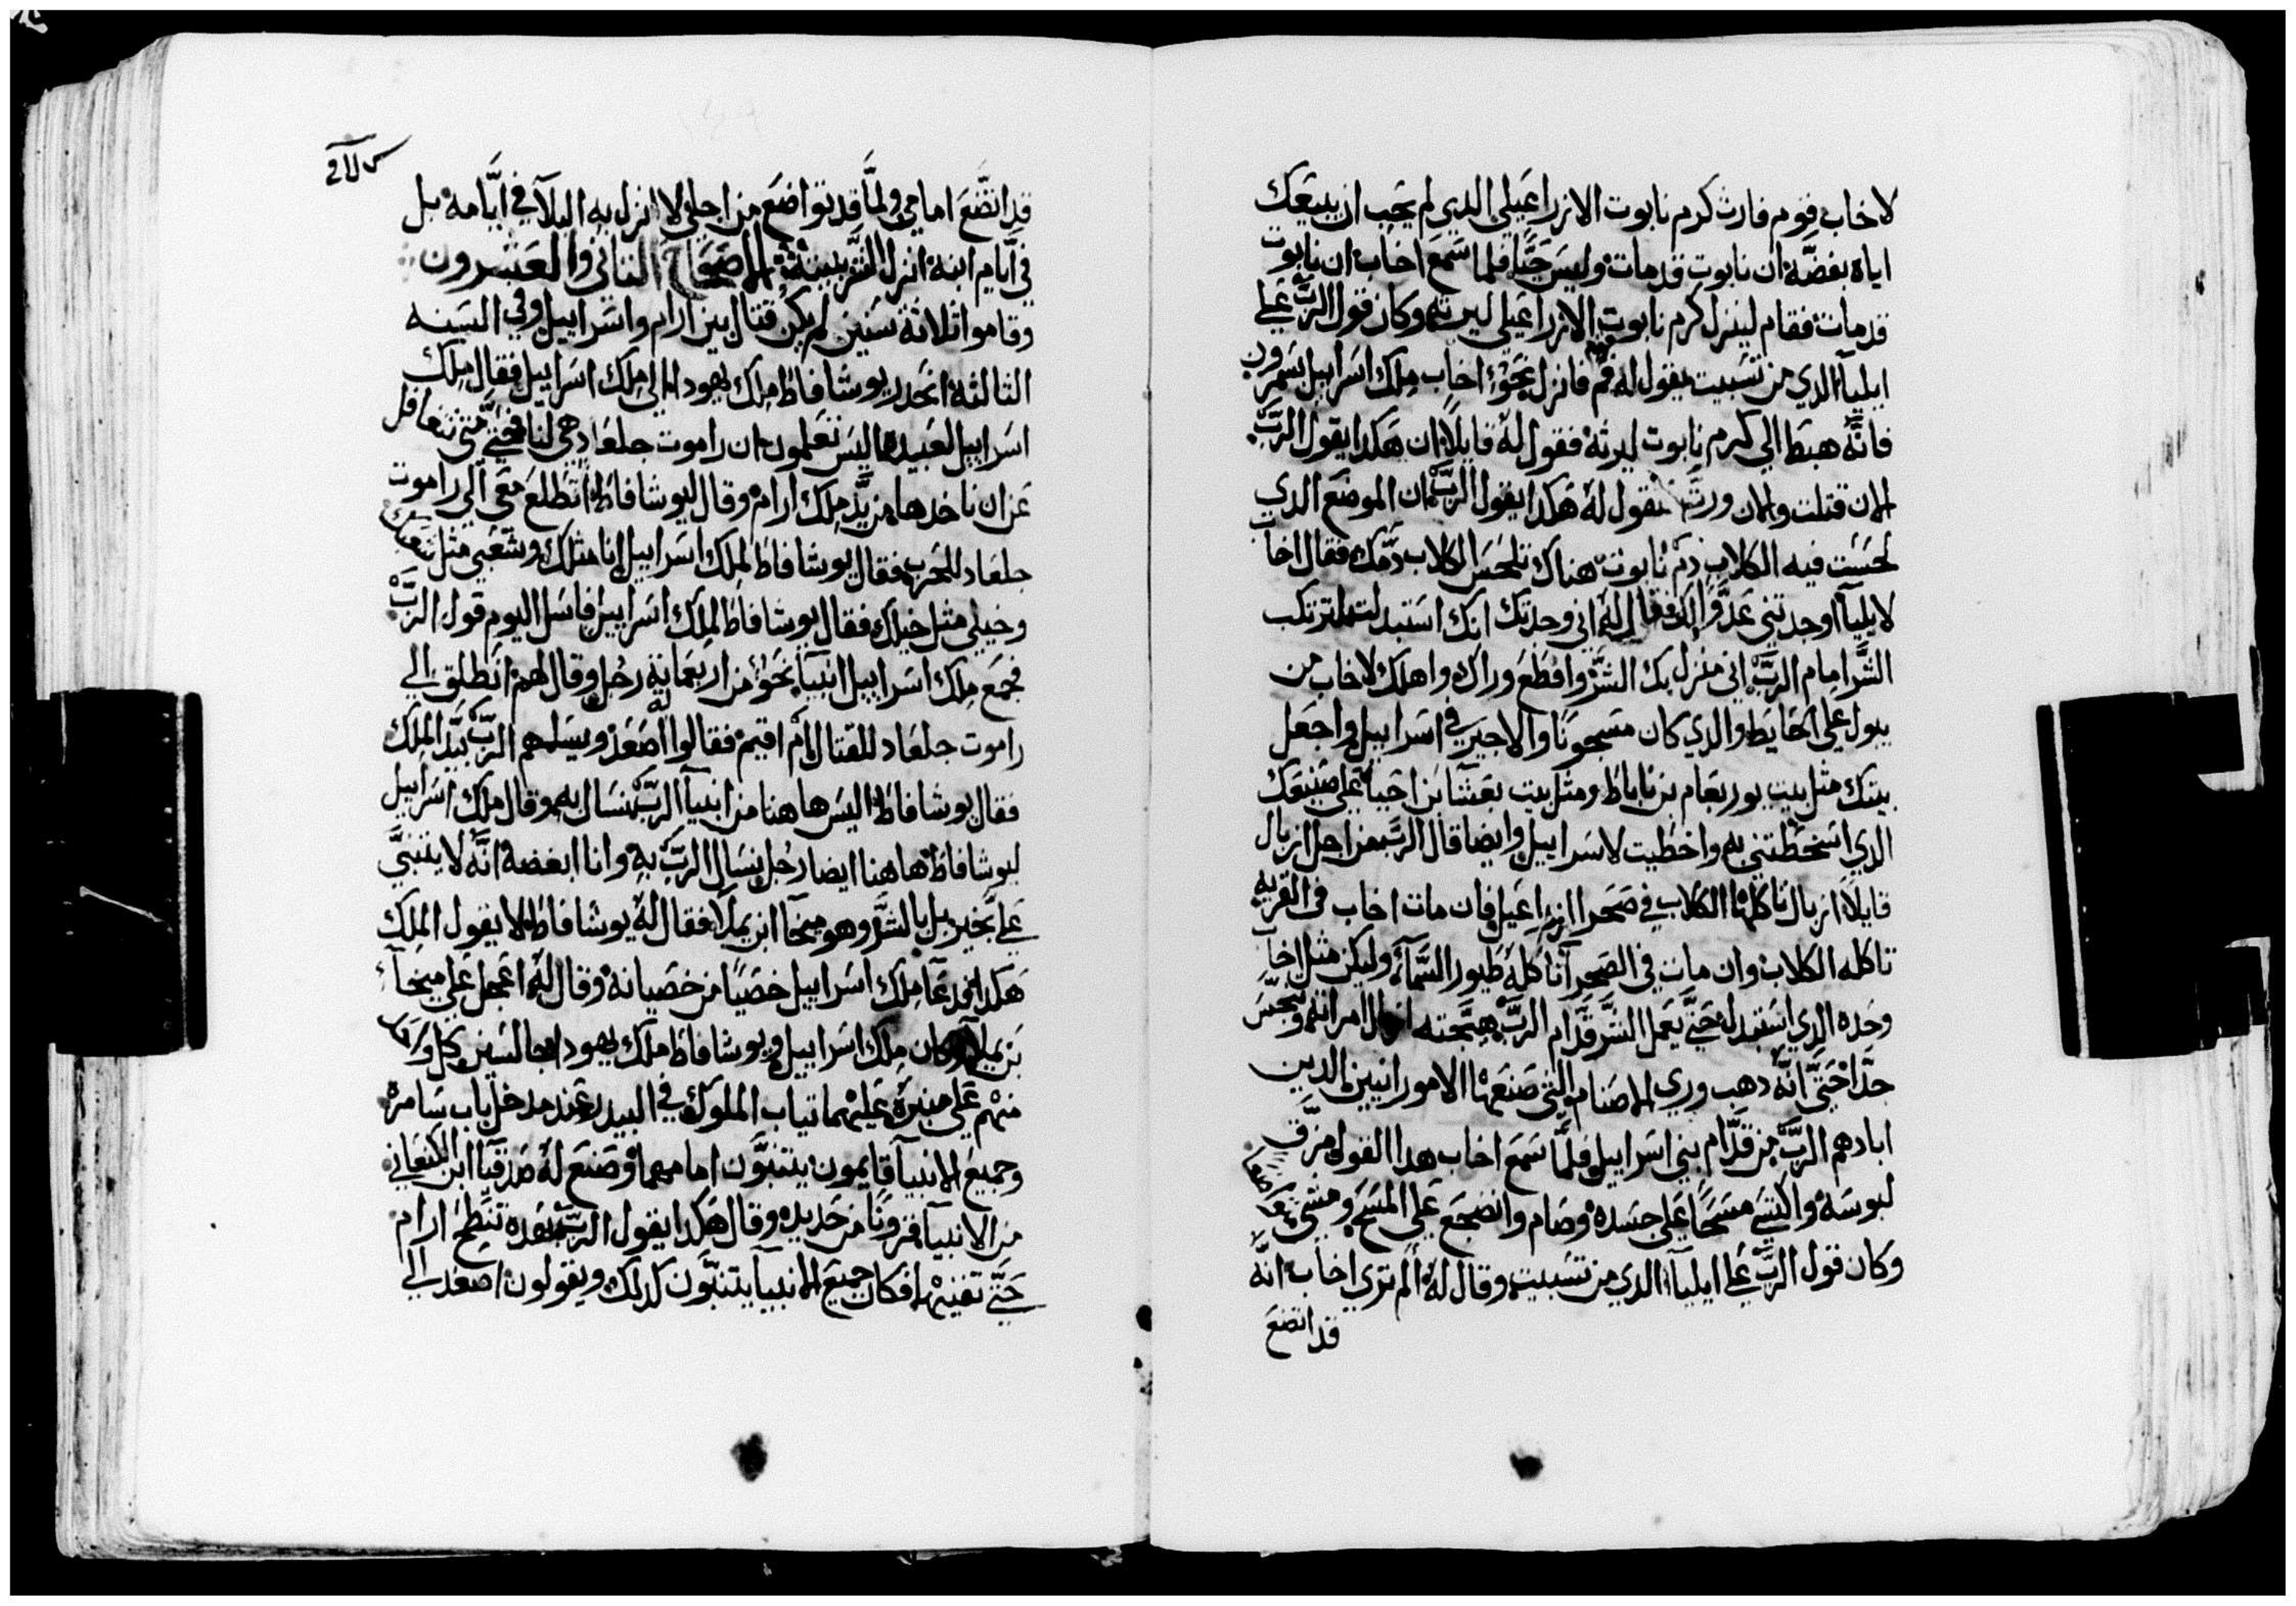 لاخاب قوم فارث كرم نابوت الازراعيلي الدي لم يحب ان يبيعك
اياه بفضّه ان نابوت قد مات وليس حيًّا فلما سَمع اخاب ان نابوت
قد مات فقام لينزل كرم نابوت الازراعيلي ليرثه وكان قول الربّ علي
ايليا الدي من تسبيت يقول له قم فانزل نحو اخاب ملك اسراييل بسمرون
فانّه هبط الي كرم نابوت ليرثه فقول له قايلاً ان هكدا يقول الربّ
الان قتلت والان ورثت فتقول له هكدا يقول الربّ ان الموضع الدي
لحست فيه الكلاب دم نابوت هناك تلحس الكلاب دمك فقال اخاب
لايليا اوجدتني عدوًّا لك فقال له اني وجدتك انك استبدلت لترتكب
الشر امام الربّ اني منزل بك الشرّ واقطع وراك واهلك لاخاب من
يبول علي الحايط والدي كان مسجونًا والاجير في اسراييل واجعل
بيتك مثل بيت يوربعام بن ناباط ومثل بيت بعشا بن احيا علي صنيعك
الدي اسخطتني به واخطيت لاسراييل وايضا قال الربّ من اجل ازبال
قايلاً ازبال تاكلها الكلاب في صحرا ازراعيل فان مات اخاب في القريه
تاكله الكلاب وان مات في الصحرا تاكله طيور السّماء وليكن مثل اخاب
وحده الدي استبدل حتّي يعمل الشر قدّام الربّ هيّجته ازبال امراته وتنجس
جدًّا حتّي انّه دهب وري الاصنام التي صنعها الامورانيين الدين
ابادهم الربّ من قدّام بني اسراييل فلمّا سمع اخاب هدا القول مزّق
لبوسه واكتسي مسحًا علي جسده وصام وانضجع علي المسح ومشي
وكان قول الربّ علي ايليا الدي من تسبيت وقال له ألم تري اخاب انّه
قد اتضع
قد اتضّع امامي ولمّا قد تواضع من اجلي لا انزل به البلآ في ايّامه بل
في ايّام ابنه انزل الشر ببيته الاصحاح التاني والعشرون
وقاموا تلاتة سنين لم يكن قتال بين ارام واسراييل وفي السنه
التالته انحدر يوشافاط ملك يهودا الي ملك اسراييل فقال ملك
اسراييل لعبيده اليس تعلمون ان راموت جلعاد هي لنا فحتي متي نتغافل
عن ان ناخدها من يد ملك ارام وقال ليوشافاط اتطلع معي الي راموت
جلعاد للحرب فقال يوشافاط لملك اسراييل انا مثلك وشعبي مثل شعبك
وخيلي مثل خيلك فقال يوشافاط لملك اسراييل فاسل اليوم قول الربّ
فجمع ملك اسراييل انبيا نحو من اربعماية رجل وقال لهم انطلق الي
راموت جلعاد للقتال ام اقيم فقالوا له اصعد ويسلمهم الربّ بيد الملك
فقال يوشافاط اليس هاهنا من انبيا الربّ نسال به وقال ملك اسراييل
ليوشافاط هاهنا ايضا رجل نسال الربّ به وانا ابغضه انّه لا يتنبيّ
علي بخير بل بالشر وهو ميخا ابن يملا فقال له يوشافاط لا يقول الملك
هكدا فدعا ملك اسراييل خصيًا من خصيانه وقال له اعجل علي ميخا
بن يملا وكان ملك اسراييل ويوشافاط ملك يهودا جالسين وكل واحد
منهم علي منبره عليهما تياب الملوك في البيدر عند مدخل باب سامرة
وجميع الانبيا قايمون يتنبّون امامهما وصنع له صدقيا ابن الكنعاني
من الانبيا قرونًا من حديد وقال هكدا يقول الربّ بهده تنطح ارام
حتّي تفنيها فكان جميع الانبيا يتنبّون كدلك ويقولون اصعد الي